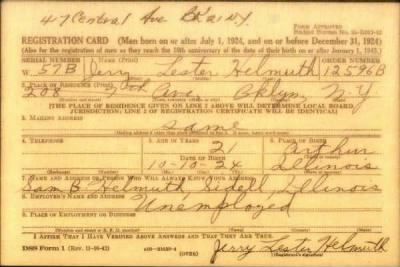 47 Central Ave Bk 21 N.Y.
FORM APPROVED
REGISTRATION CARD (Men born on or after July 1, 1924, and on or before December 31, 1924)
(Also for the registration of men as they reach the 18th anniversary of the date of their birth on or after January 1, 1943.)
SERIAL NUMBER 1. NAME (Print) ORDER NUMBER
W 57B Jerry Lester Helmuth 12596B
2. PLACE OF RESIDENCE (Print)
208 Ave. Bklyn, N.Y
[THE PLACE OF RESIDENCE GIVEN ON LINE 2 ABOVE WILL DETERMINE LOCAL BOARD
JURISDICTION; LINE 2 OF REGISTRATION CERTIFICATE WILL BE IDENTICAL]
3. MAILING ADDRESS
Same
4. TELEPHONE 5. AGE IN YEARS 6. PLACE OF BIRTH
21 Arthur
DATE OF BIRTH
10-10-24 Illinois
7. NAME AND ADDRESS OF PERSON WHO WILL ALWAYS KNOW YOUR ADDRESS
Sam B. Helmuth, Sidell, Illinois
8. EMPLOYER'S NAME AND ADDRESS
Unemployed
9. PLACE OF EMPLOYMENT OR BUSINESS
I AFFIRM THAT I HAVE VERIFIED ABOVE ANSWERS AND THAT THEY ARE TRUE.
DSS Form 1 (Rev. 11-16-42) (OVER) Jerry Lester Helmuth